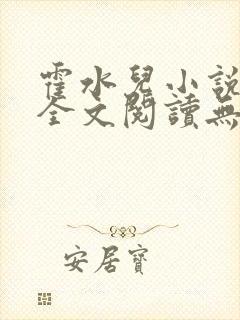 霍水兒小說
全文閱讀無
安居寶